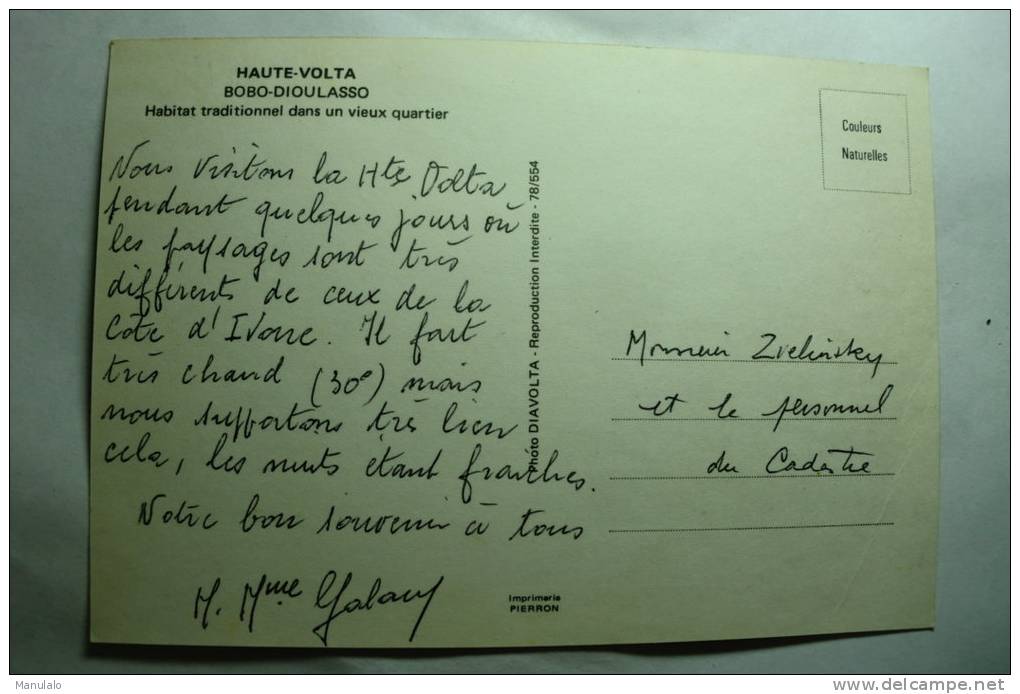 HAUTE-VOLTA
BOBO-DIOULASSO
Habitat traditionnel dans un vieux quartier
Nous visitons la Hte Volta
pendant quelques jours où
les paysages sont très
différents de ceux de la
Côte d'Ivoire. Il fait
très chaud (30°) mais
nous supportons très bien
cela, les nuits étant fraîches.
Notre bon souvenir à tous
M. Mme
Photo DIAVOLTA - Reproduction Interdite - 78/554
Imprimerie
PIERRON
Couleurs
Naturelles
Monsieur Zielinsky
et le personnel
du Cadastre
Manulalo
delcampe.net